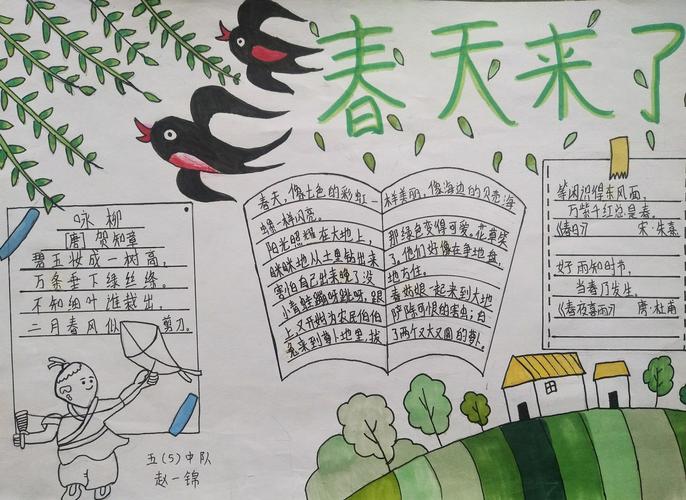 春天来了
咏柳
[唐] 贺知章
碧玉妆成一树高,
万条垂下绿丝绦。
不知细叶谁裁出,
二月春风似剪刀。
春天,像七色的彩虹一样美丽,像海边的贝壳海
螺一样闪亮。
阳光照耀在大地上,那绿色变得可爱。花草笑
眯眯地从土里钻出来了,他们好像在争地盘,
害怕自己起来晚了没地方住。
小青蛙蹦呀跳呀,跟春姑娘一起来到大地
上,又开始为农民伯伯铲除可恨的害虫;白
兔来到萝卜地里,拔了两个又大又圆的萝卜。
等闲识得东风面,
万紫千红总是春。
《春日》 宋·朱熹
好雨知时节,
当春乃发生。
《春夜喜雨》 唐·杜甫
五(5)中队
赵一锦